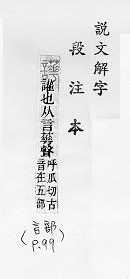 說文解字
段注本
讙也从言華聲呼瓜切古
音在五部
(言部
P.99)